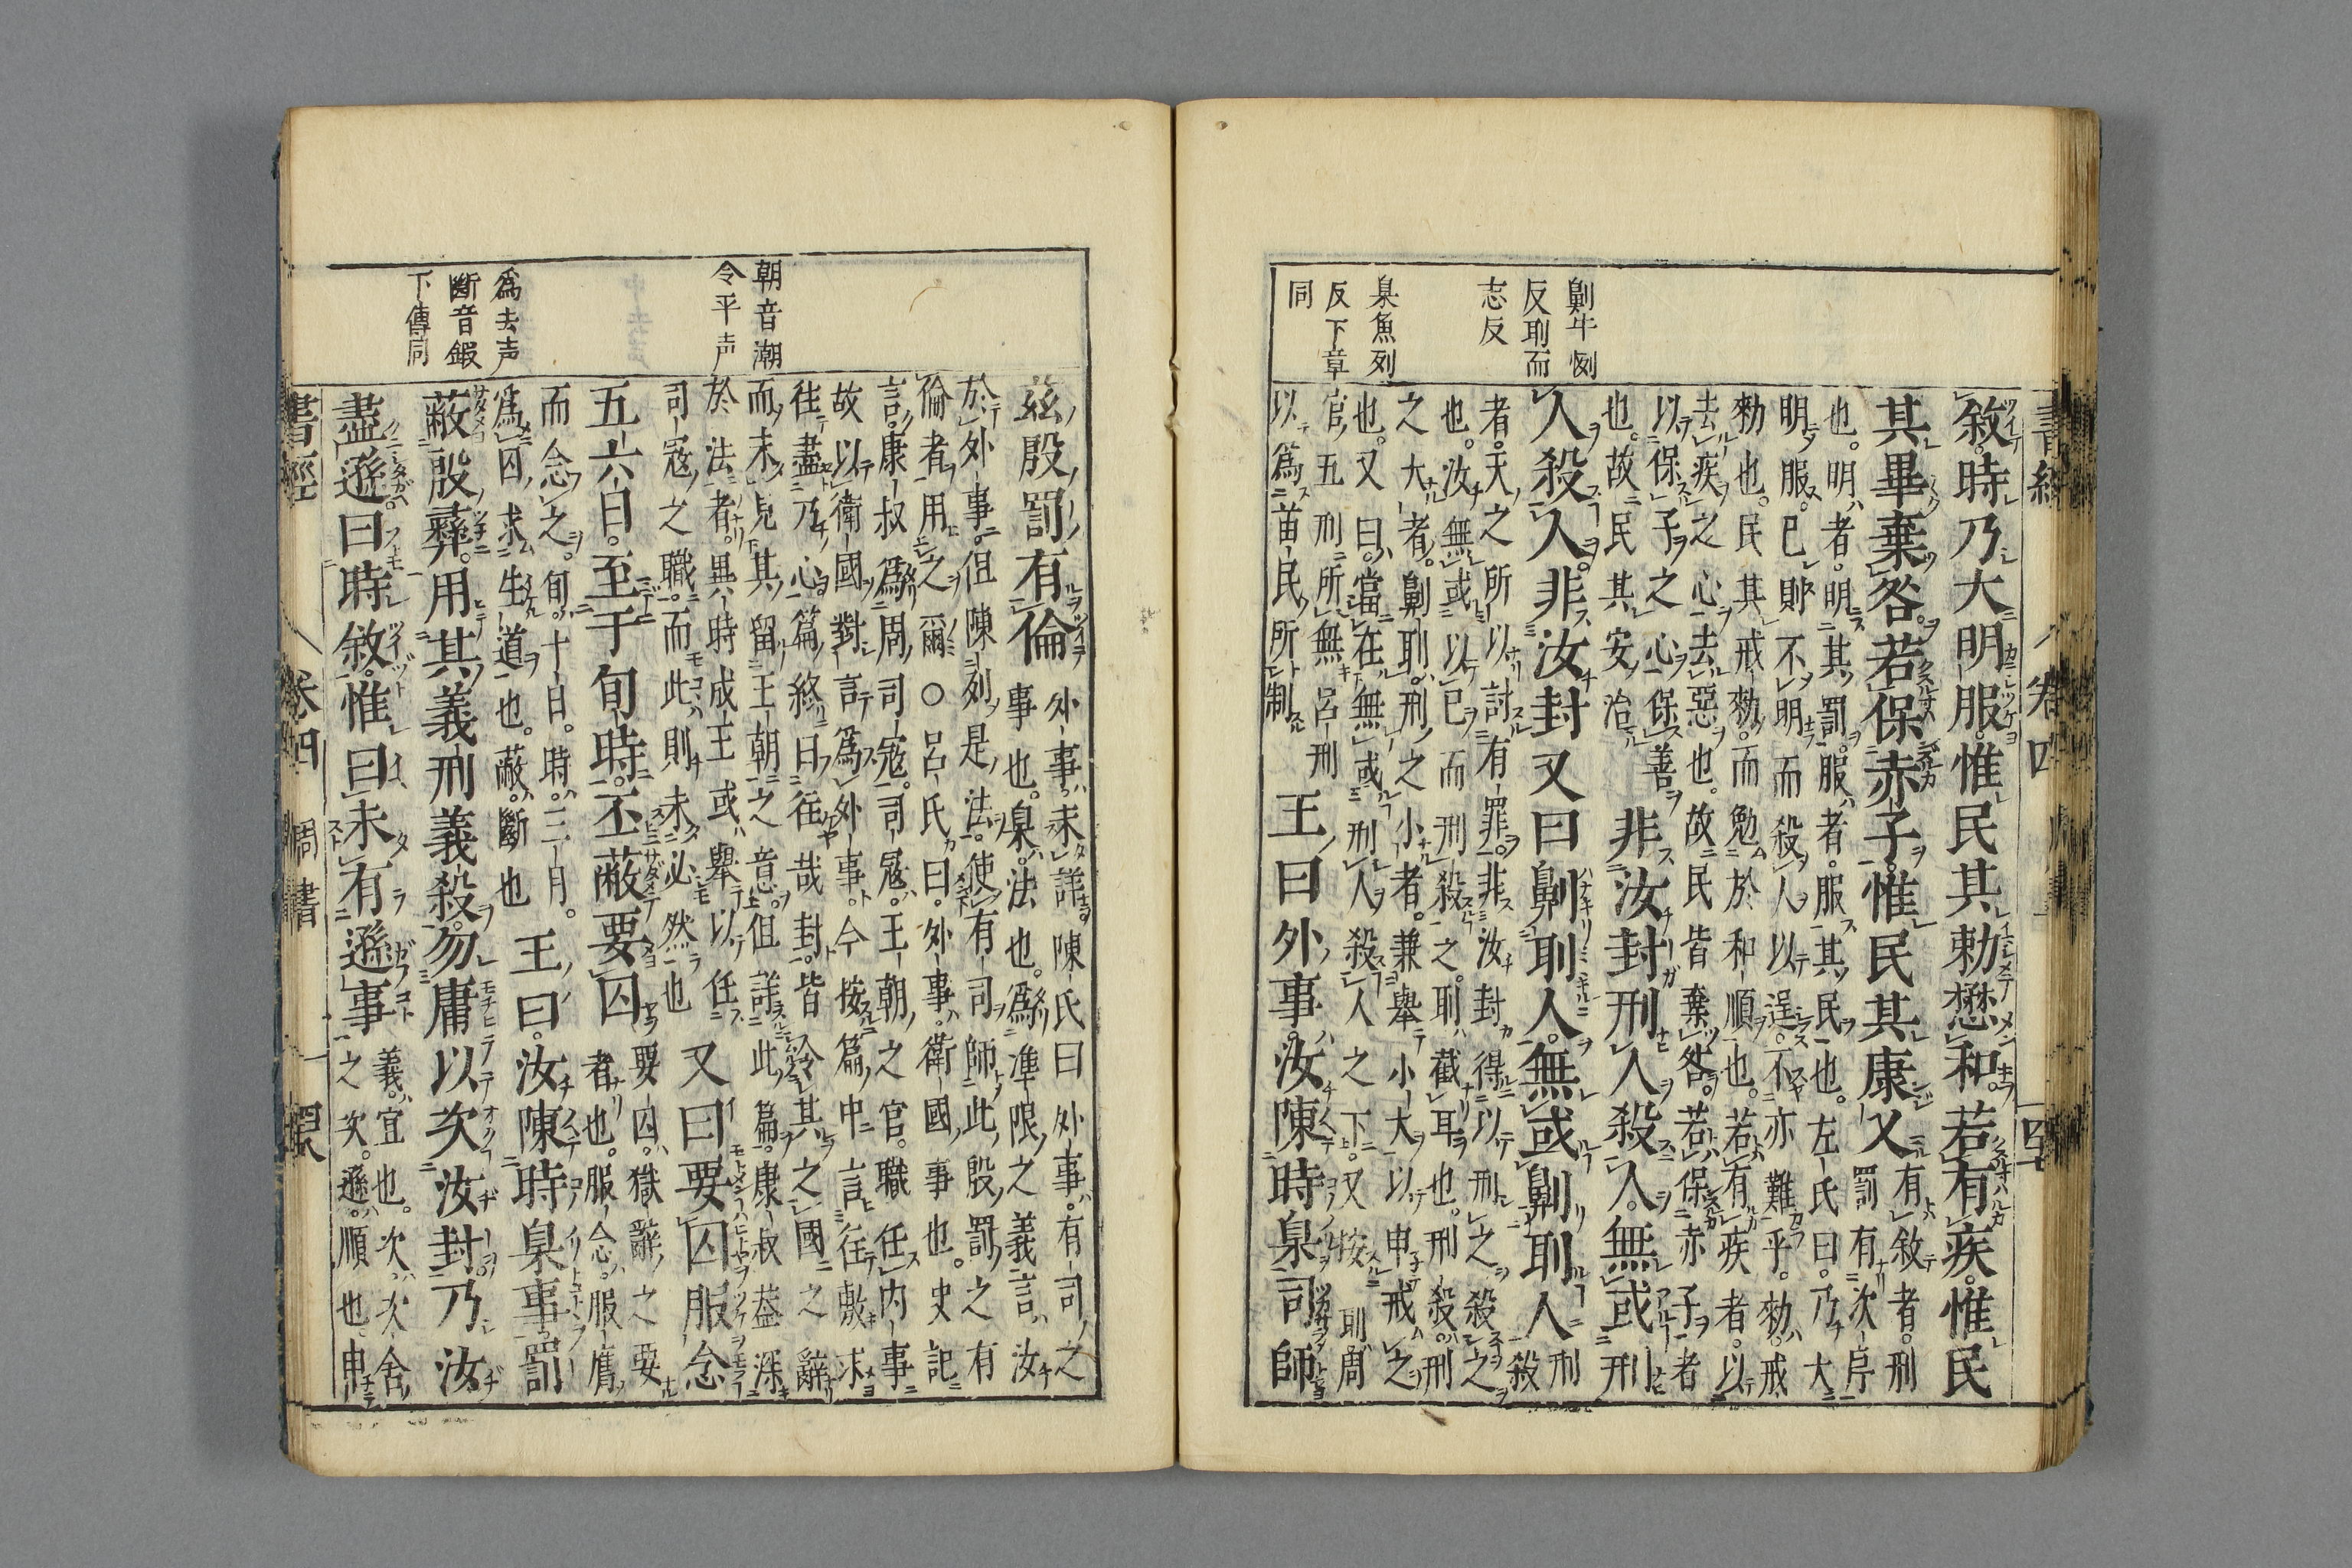 劓牛例
反刵而
志反
臬魚列
反下章
同
敘時乃大明服惟民其勅懋和若有疾惟民
其畢棄咎若保赤子惟民其康乂
有敘者。刑
罰有次序
也。明者。明其罰。服者。服其民也。左氏曰。乃大
明服。已則不明而殺人以逞。不亦難乎。勅戒
勅也。民其戒勅。而勉於和順也。若有疾者。以
去疾之心去惡也。故民皆棄咎。若保赤子者
以保子之心。保善
也。故民其安治
非汝封刑人殺人。無或刑
人殺人。非汝封又曰劓刵人。無或劓刵人
刑
殺
者。天之所以討有罪。非汝封得以刑之殺之
也。汝無或以已而刑殺之。刵截耳也。刑殺。刑
之大者。劓刵刑之小者。兼舉小大以申戒之
也。又曰。當在無或刑人殺人之下。又按刵周
官五刑所無呂刑
以爲苗民所制
王曰外事。汝陳時臬司師
書經
卷四
朝音潮
令平声
爲去声
斷音鍜
下傳同
茲殷罰有倫
外事。未詳。陳氏曰外事。有司之
事也。臬。法也。爲準限之義言。汝
於外事。但陳列是法。使有司師此殷罰之有
倫者。用之爾○呂氏曰。外事。衛國事也。史記
言。康叔爲周司寇。司寇。王朝之官。職任內事
故以衛國對言爲外事。今按篇中言往敷求
往盡乃心。篇終曰往哉封。皆令其之國之辭
而未見其留王朝之意。但詳此篇。康叔蓋深
於法者。異時成王或舉以任
司寇之職。而此則未必然也
又曰要囚服念
五六日。至于旬時。丕蔽要囚
要囚。獄辭之要
者也。服念。服膺
而念之。旬。十日。時。三月。
爲囚求生道也。蔽。斷也
王曰。汝陳時臬事罰
蔽殷彝。用其義刑義殺。勿庸以次汝封。乃汝
盡遜。曰時敘。惟曰未有遜事
義。宜也。次。次舍
之次。遜。順也。申
書經
卷四
周書